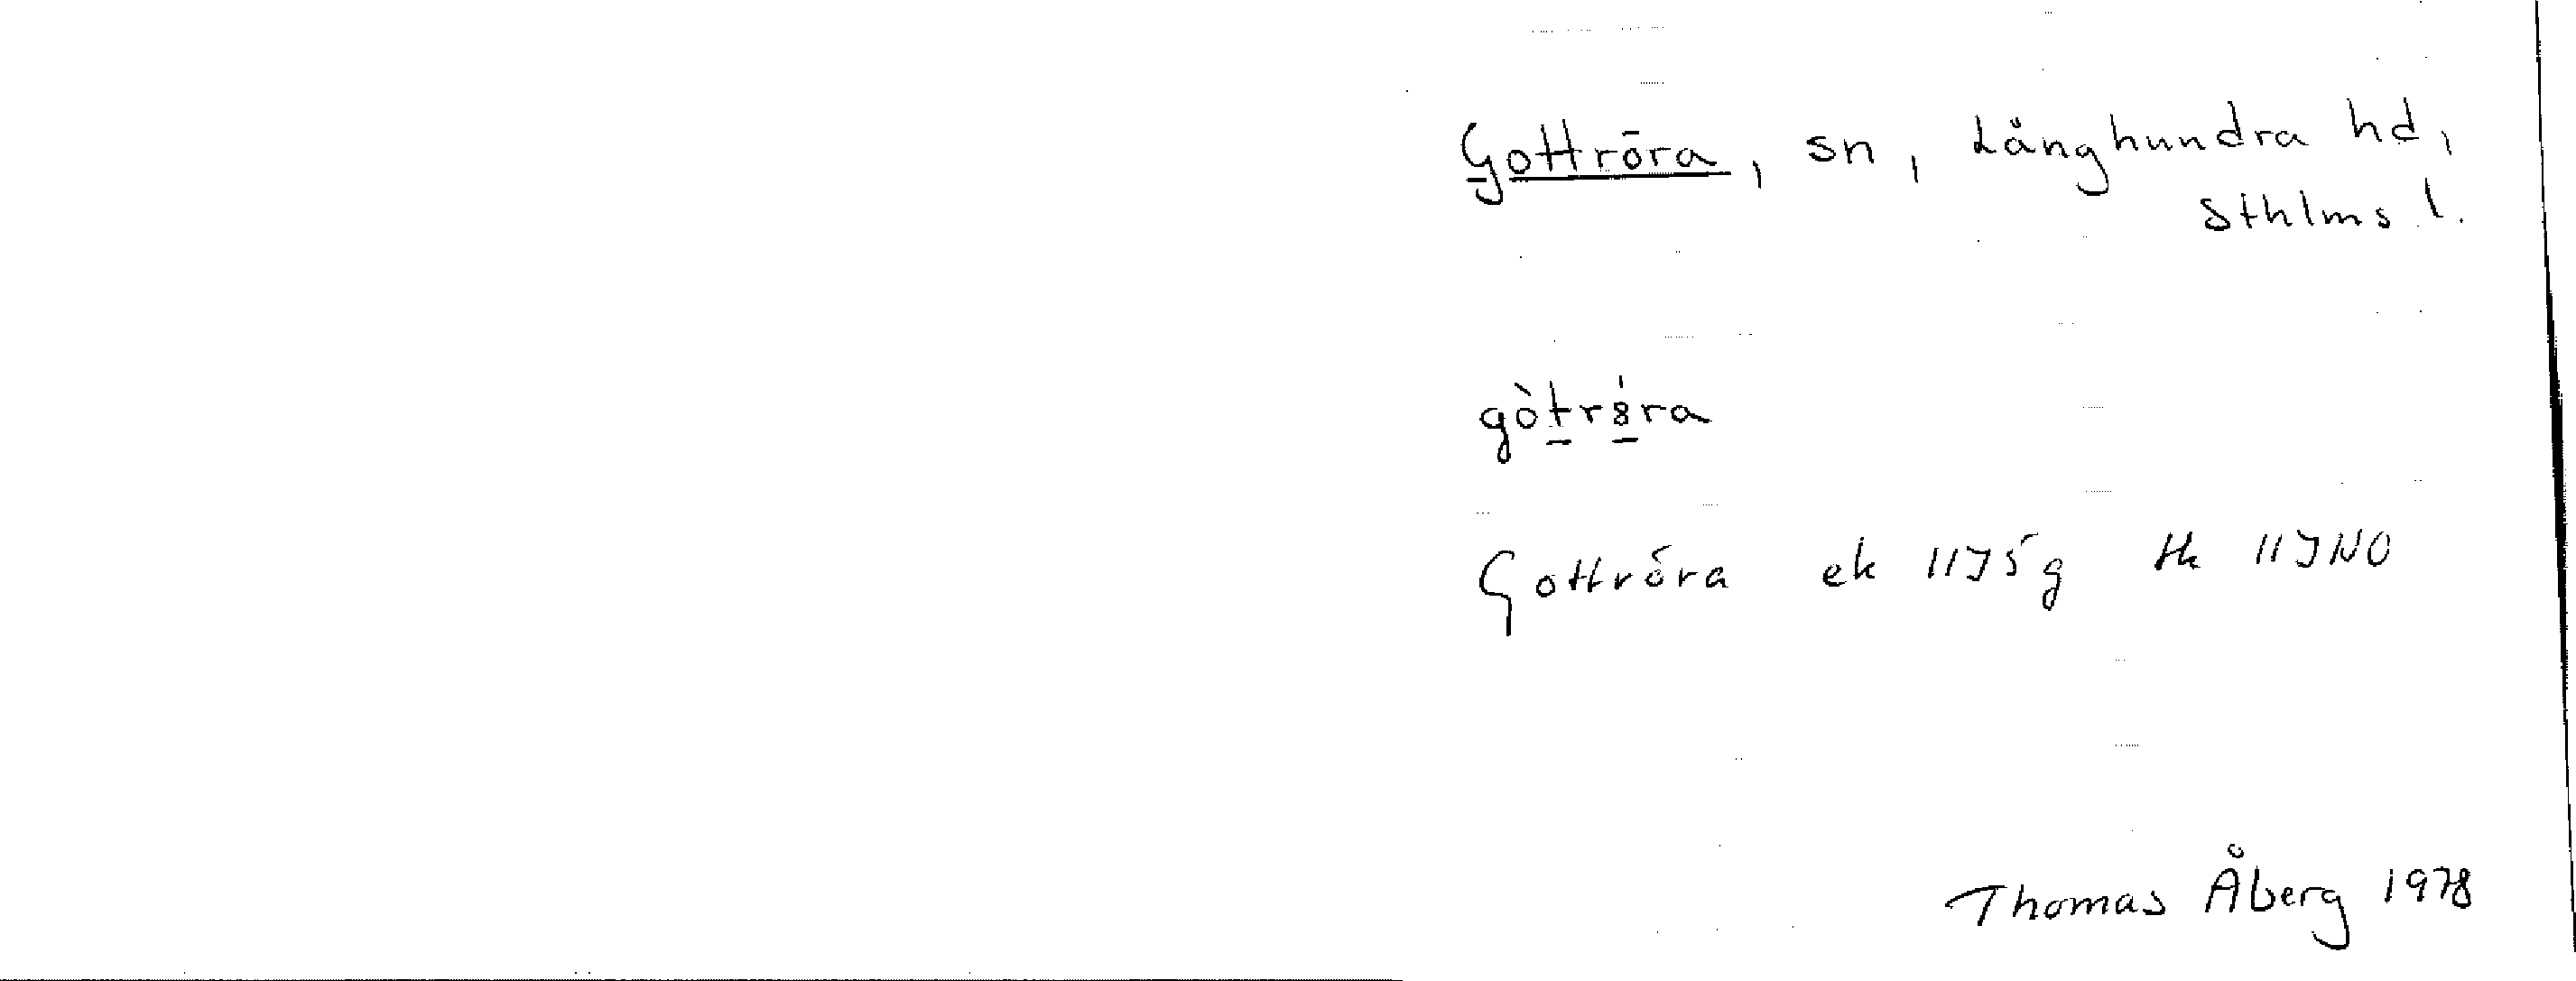 Gottröra, sn, Långhundra hd,
Sthlms l.
gòtrö́ra
Gottröra ek 11J5g tk 11JNO
Thomas Åberg 1978